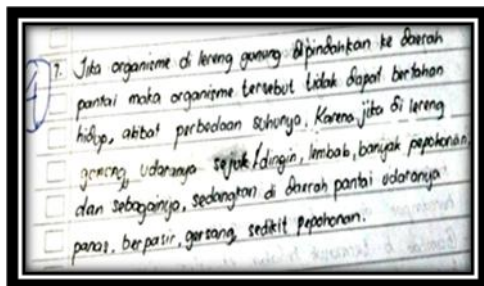 7. Jika organisme di lereng gunung dipindahkan ke daerah
pantai maka organisme tersebut tidak dapat bertahan
hidup, akibat perbedaan suhunya. Karena jika di lereng
gunung, udaranya sejuk/dingin, lembab, banyak pepohonan,
dan sebagainya, sedangkan di daerah pantai udaranya
panas, berpasir, gersang, sedikit pepohonan.